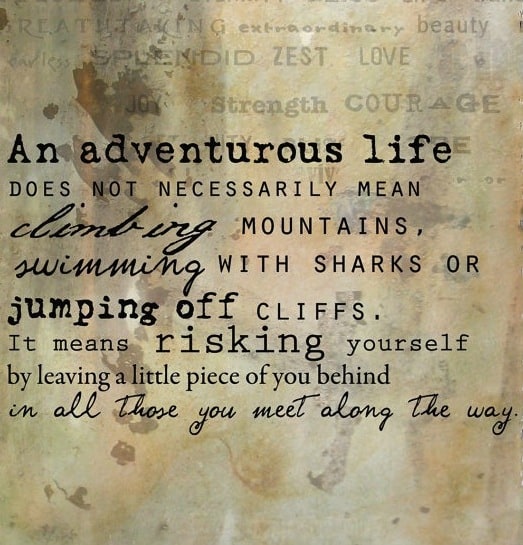 BREATHTAKING extraordinary beauty
endless SPLENDID ZEST LOVE
JOY Strength COURAGE
An adventurous life
DOES NOT NECESSARILY MEAN
climbing MOUNTAINS,
swimming WITH SHARKS OR
jumping off CLIFFS.
It means risking yourself
by leaving a little piece of you behind
in all those you meet along the way.